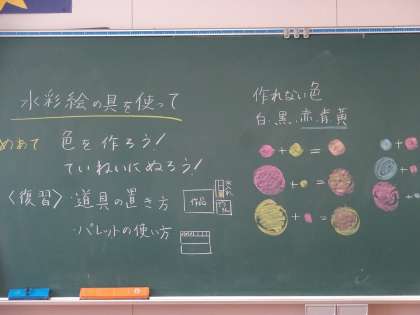 水彩絵の具を使って
めあて 色を作ろう!
ていねいにぬろう!
〈復習〉・道具の置き方
作品
・パレットの使い方
作れない色
白、黒、赤、青、黄
+ =
+ =
+ =
+
+
+